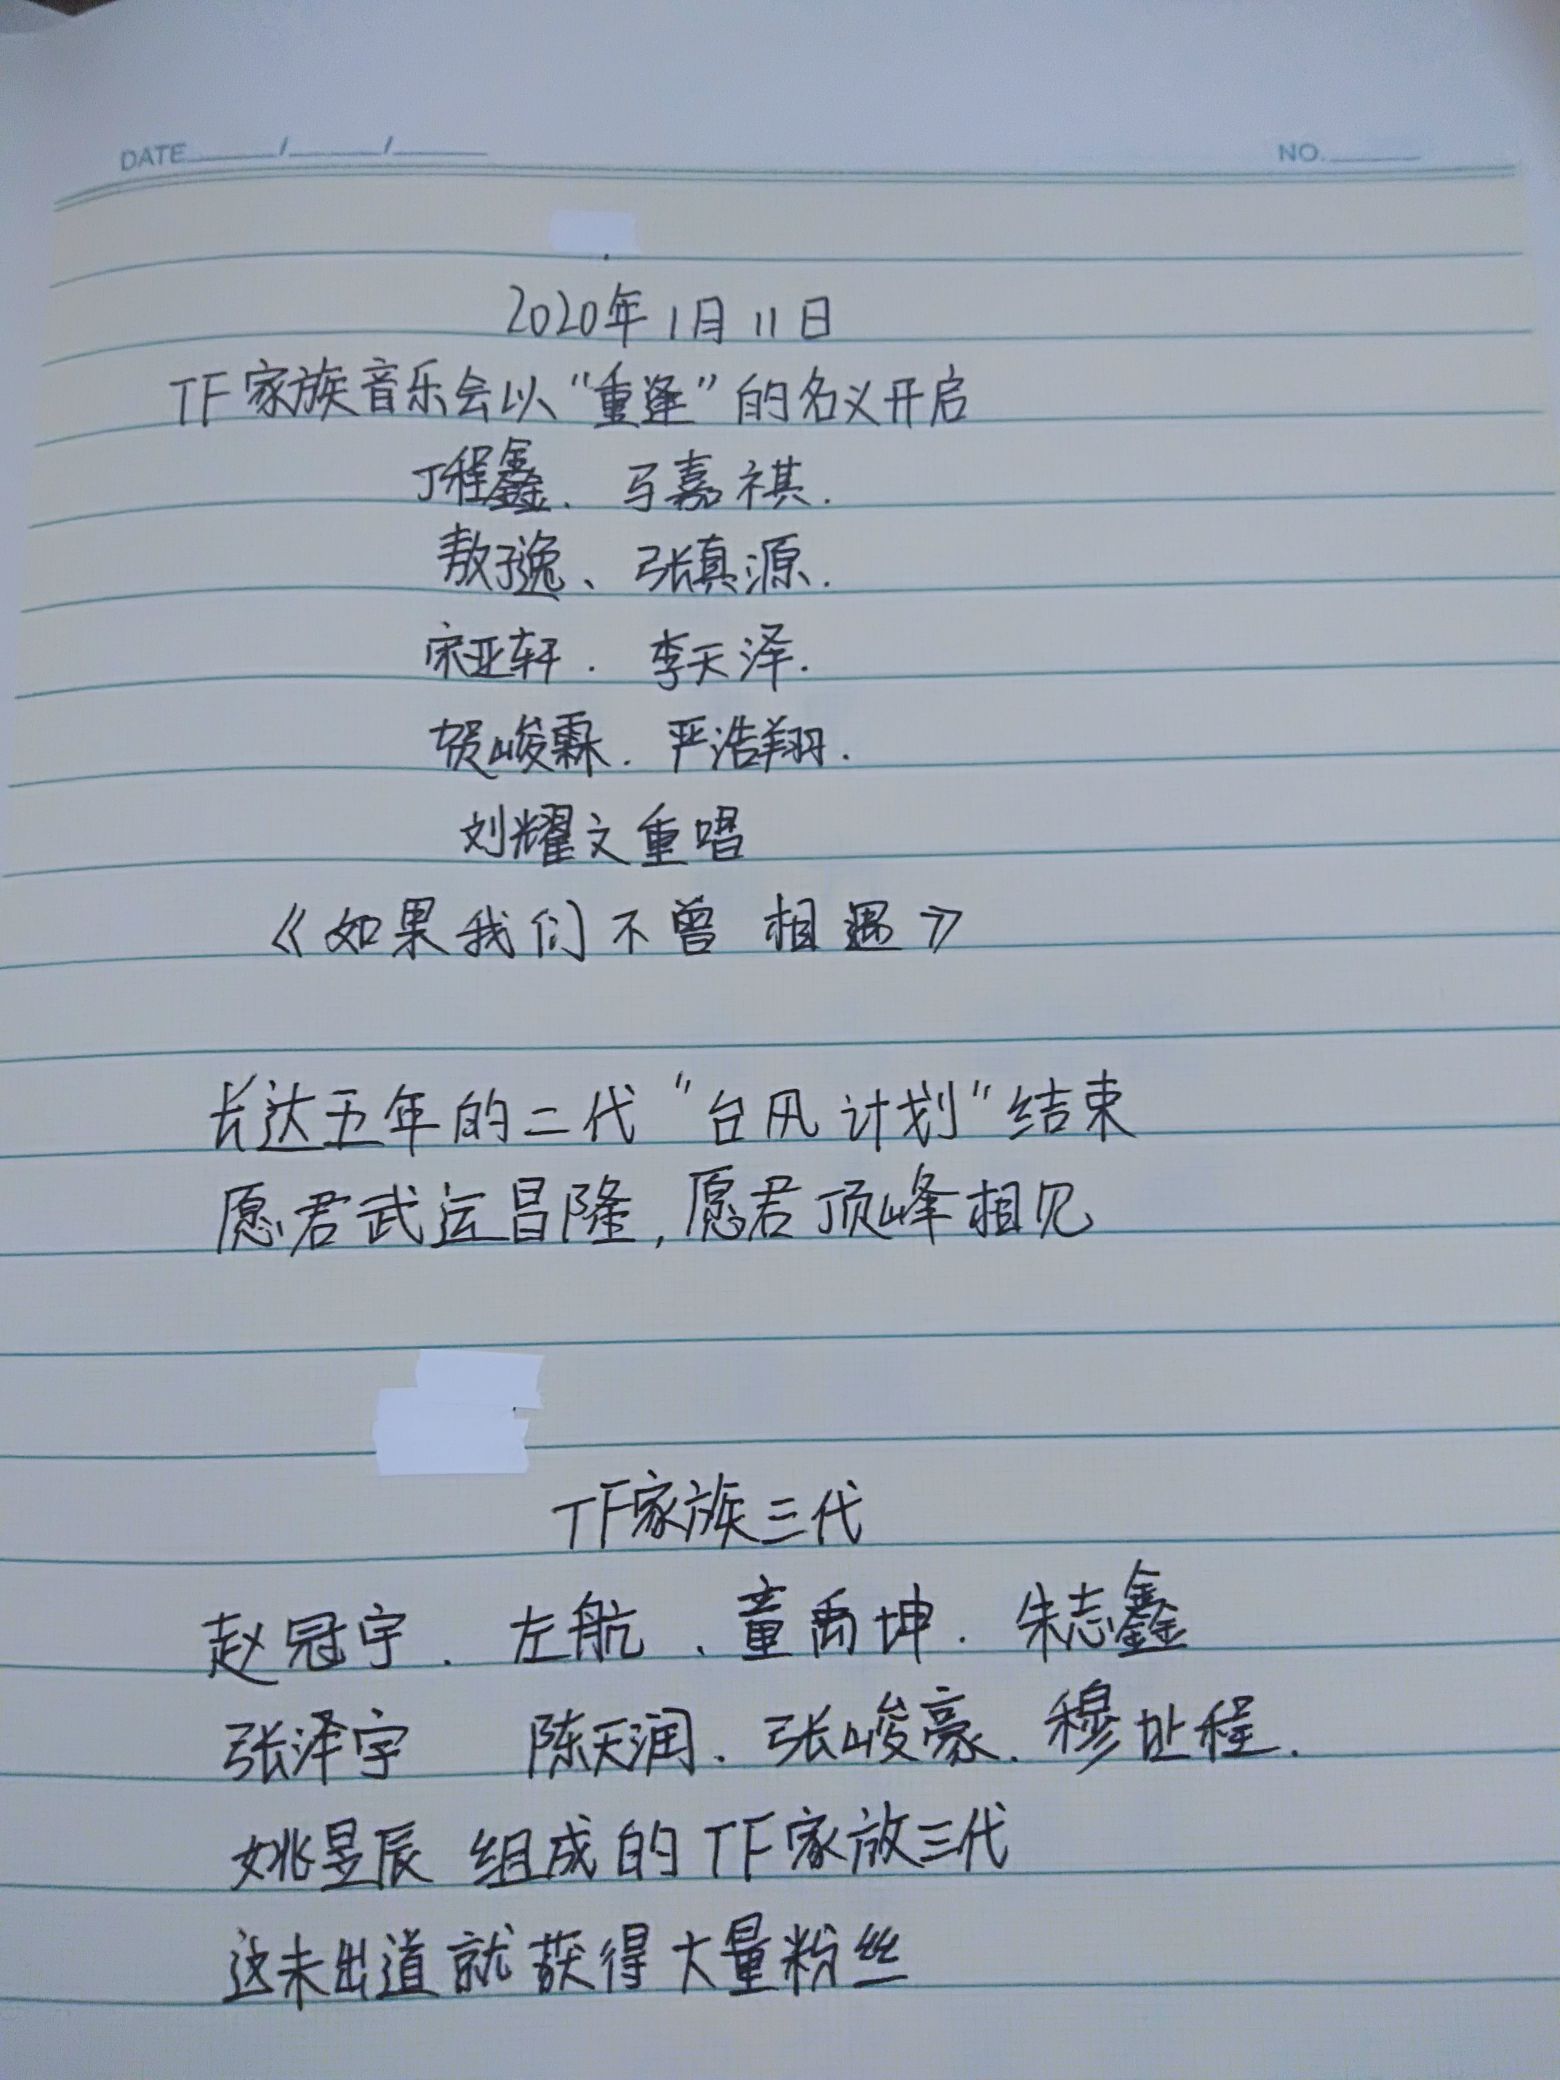 DATE / /
NO.
2020年1月11日
TF家族音乐会以“重逢”的名义开启
丁程鑫、马嘉祺.
敖子逸、张真源.
宋亚轩.李天泽.
贺峻霖.严浩翔.
刘耀文重唱
《如果我们不曾相遇》
长达五年的二代“台风计划”结束
愿君武运昌隆,愿君顶峰相见
TF家族三代
赵冠宇.左航、童禹坤.朱志鑫
张泽宇 陈天润、张峻豪.穆祉程.
姚昱辰 组成的TF家放三代
这未出道就获得大量粉丝